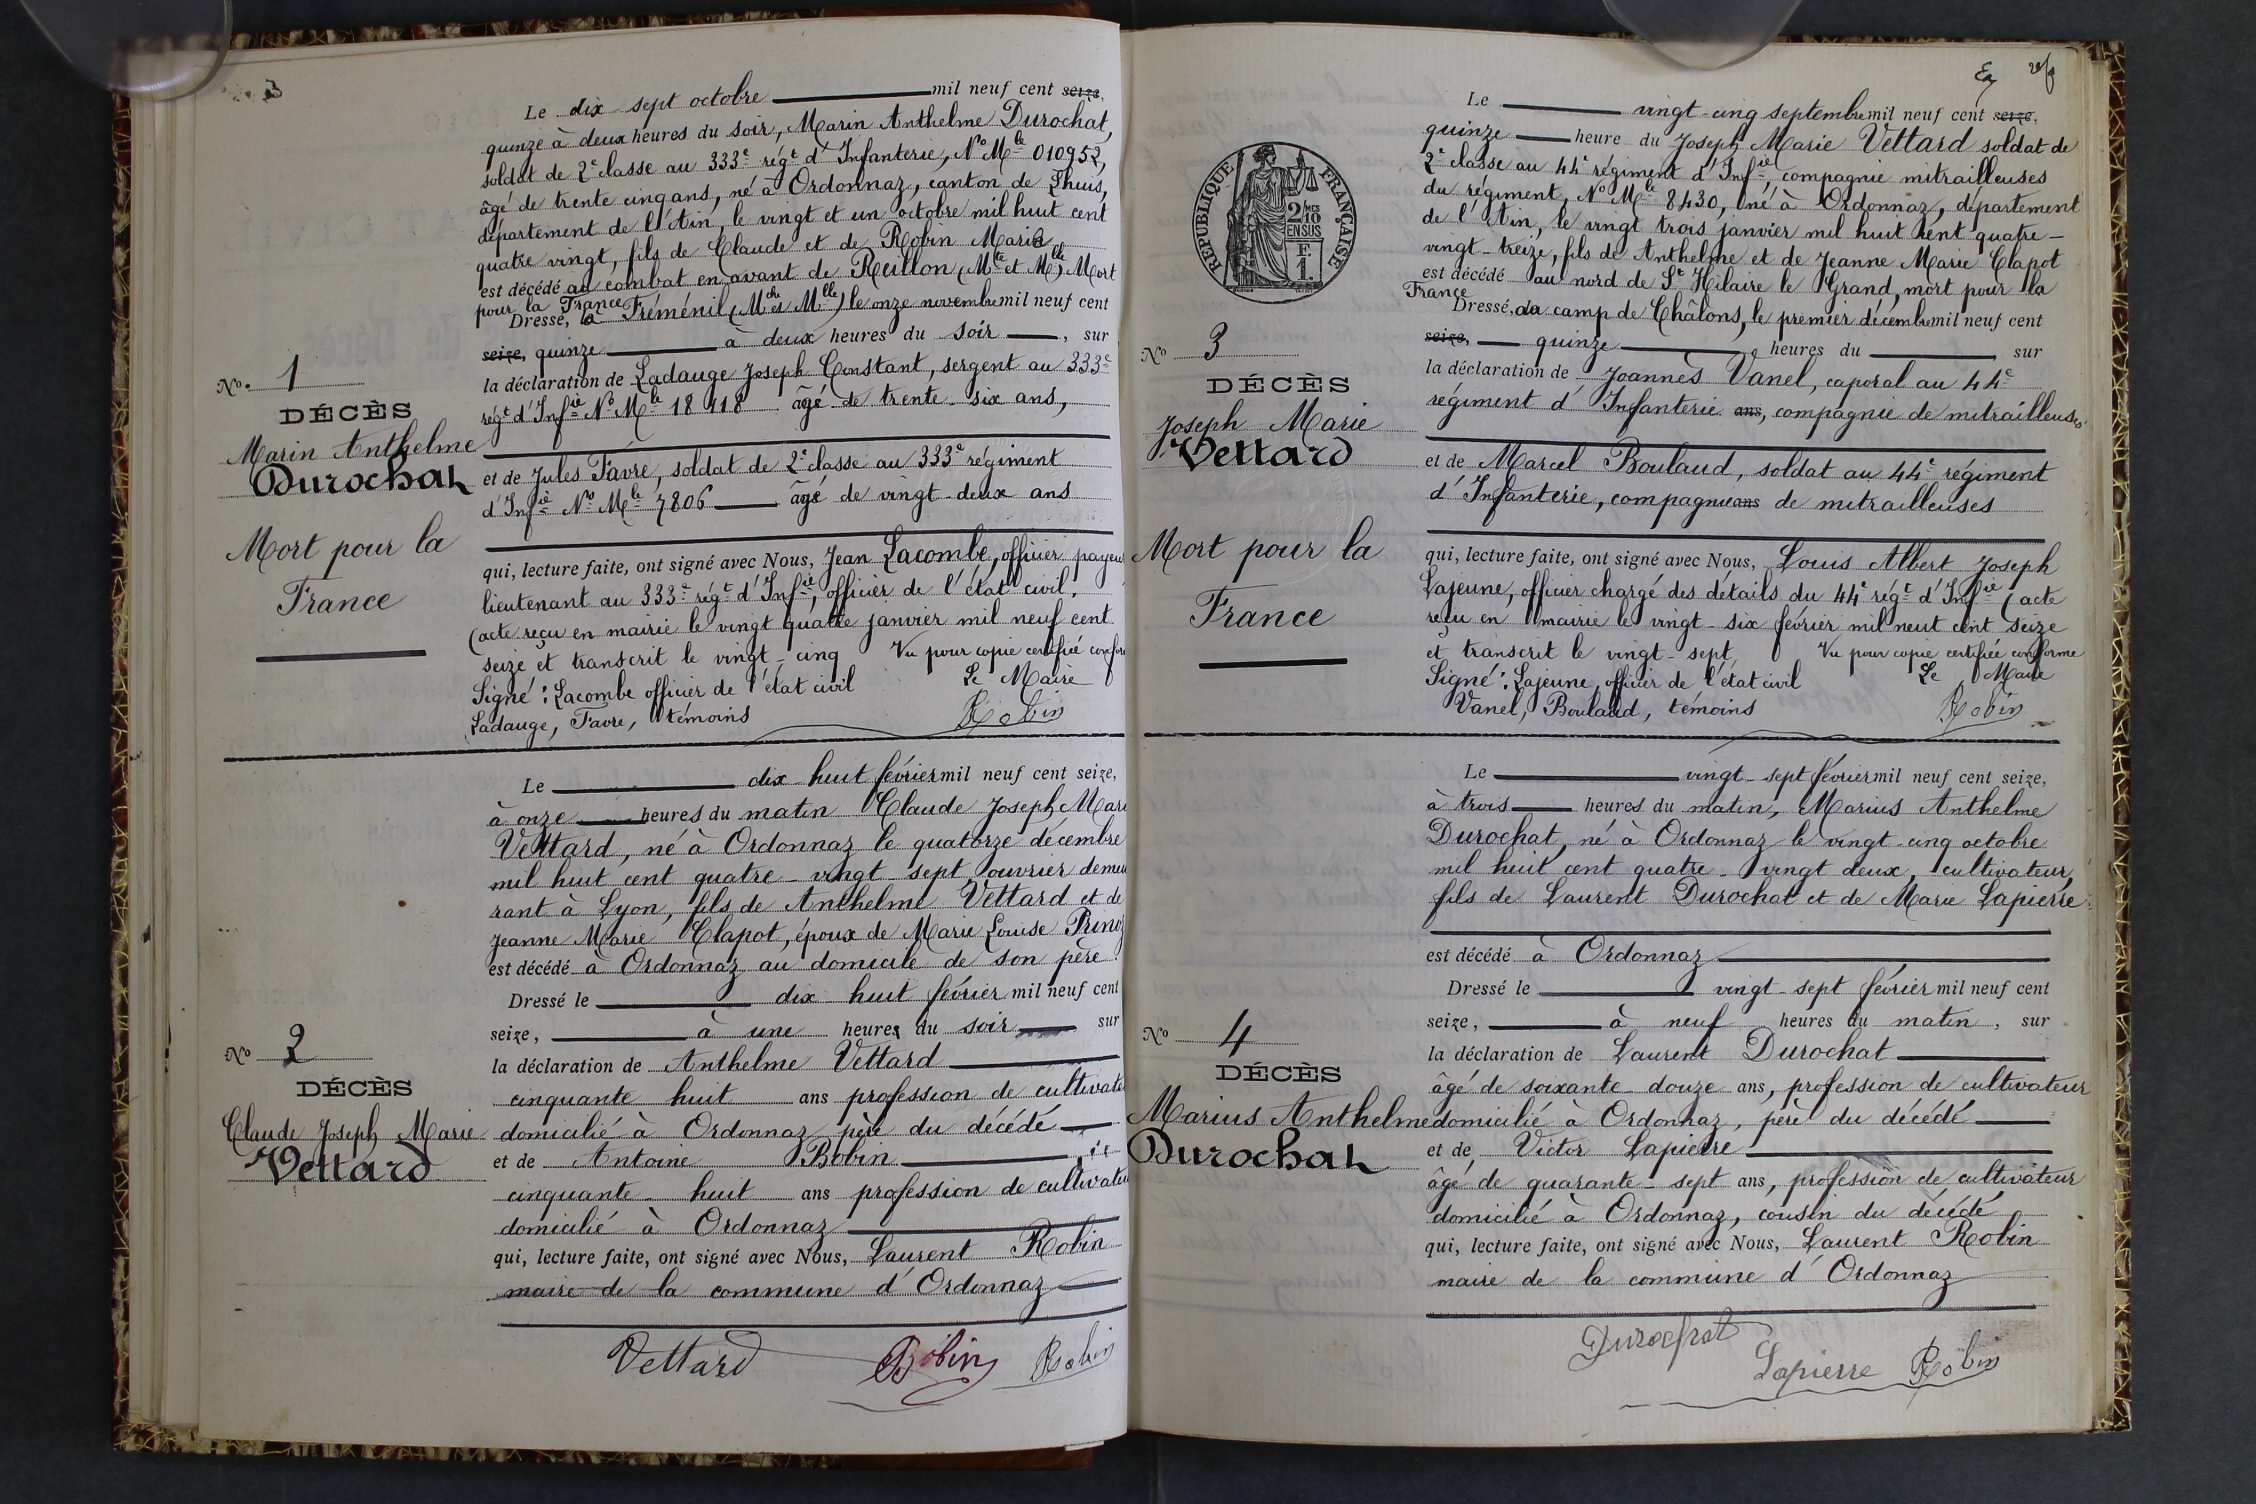 3
Le dix sept octobre mil neuf cent seize,
quinze à deux heures du soir, Marin Anthelme Durochat,
soldat de 2e classe au 333e régt d'Infanterie, No Mle 010952,
âgé de trente cinq ans, né à Ordonnaz, canton de Lhuis,
département de l'Ain, le vingt et un octobre mil huit cent
quatre vingt, fils de Claude et de Robin Marie
est décédé au combat en avant de Reillon (Mthe et Mlle) Mort
pour la France
Dressé, à Fréménil (Mthe et Mlle) le onze novembre mil neuf cent
seize, quinze à deux heures du soir, sur
la déclaration de Ladauge Joseph Constant, sergent au 333e
régt d'Infie No Mle 18418 âgé de trente-six ans,
et de Jules Favre, soldat de 2e classe au 333e régiment
d'Infie No Mle 7806 âgé de vingt-deux ans
qui, lecture faite, ont signé avec Nous, Jean Lacombe, officier payeur
lieutenant au 333e régt d'Infie, officier de l'état civil.
(acte reçu en mairie le vingt quatre janvier mil neuf cent
seize et transcrit le vingt-cinq Vu pour copie certifié confor
Signé: Lacombe officier de l'état civil Le Maire
Ladauge, Favre, témoins Robin
No. 1
DÉCÈS
Marin Anthelme
Durochat
Mort pour la
France
Le dix-huit février mil neuf cent seize,
à onze heures du matin Claude Joseph Mari
Vettard, né à Ordonnaz le quatorze décembre
mil huit cent quatre-vingt-sept, ouvrier demeu
rant à Lyon, fils de Anthelme Vettard et de
Jeanne Marie Clapot, époux de Marie Louise
est décédé à Ordonnaz au domicile de son père
Dressé le dix huit février mil neuf cent
seize, à une heures du soir sur
la déclaration de Anthelme Vettard
cinquante huit ans profession de cultivate
domicilié à Ordonnaz père du décédé
et de Antoine Bobin
cinquante-huit ans profession de cultivateu
domicilié à Ordonnaz
qui, lecture faite, ont signé avec Nous, Laurent Robin
maire de la commune d'Ordonnaz
Vettard Bobin Robin
No 2
DÉCÈS
Claude Joseph Marie
Vettard
Le vingt-cinq septembre mil neuf cent seize,
quinze heure du Joseph Marie Vettard soldat de
2e classe au 44e régiment d'Infie, compagnie mitrailleuses
du régiment, No Mle 8430, né à Ordonnaz, département
de l'Ain, le vingt trois janvier mil huit cent quatre-
vingt-treize, fils de Anthelme et de Jeanne Marie Clapot
est décédé au nord de St Hilaire le Grand, mort pour la
France
Dressé, au camp de Châlons, le premier décembre mil neuf cent
seize, quinze, heures du sur
la déclaration de Joannès Vanel, caporal au 44e
régiment d'Infanterie ans, compagnie de mitrailleuses
et de Marcel Boulaud, soldat au 44e régiment
d'Infanterie, compagnie ans de mitrailleuses
qui, lecture faite, ont signé avec Nous, Louis Albert Joseph
Lajeune, officier chargé des détails du 44e régt d'Infie (acte
reçu en mairie le vingt-six février mil neuf cent seize
et transcrit le vingt-sept Vu pour copie certifiée conforme
Signé: Lajeune, officier de l'état civil Le Maire
Vanel, Boulaud, témoins Robin
RÉPUBLIQUE FRANÇAISE
2/10 EN SUS
F.
1.
No 3
DÉCÈS
Joseph Marie
Vettard
Mort pour la
France
Le vingt-sept février mil neuf cent seize,
à trois heures du matin, Marius Anthelme
Durochat, né à Ordonnaz le vingt-cinq octobre
mil huit cent quatre-vingt deux, cultivateur,
fils de Laurent Durochat et de Marie Lapierre
est décédé à Ordonnaz
Dressé le vingt-sept février mil neuf cent
seize, à neuf heures du matin, sur
la déclaration de Laurent Durochat
âgé de soixante-douze ans, profession de cultivateur
domicilié à Ordonnaz, père du décédé
et de Victor Lapierre
âgé de quarante-sept ans, profession de cultivateur
domicilié à Ordonnaz, cousin du décédé
qui, lecture faite, ont signé avec Nous, Laurent Robin
maire de la commune d'Ordonnaz
Durochat Lapierre Robin
No 4
DÉCÈS
Marius Anthelme
Durochat